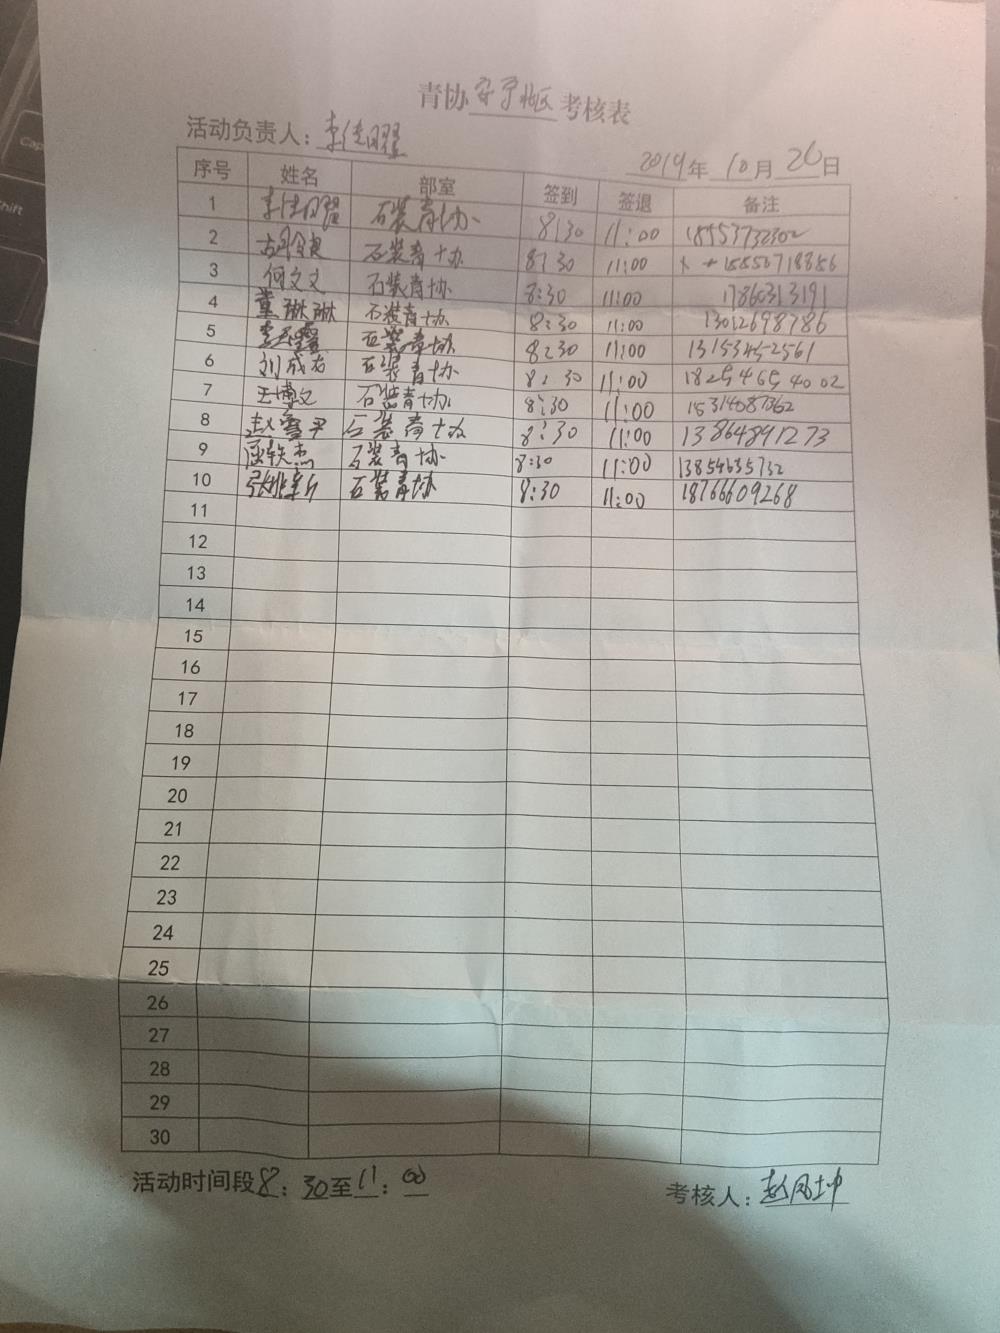 青协 安宁地区 考核表
活动负责人：李佳曜
2019年 10月 26日
序号 姓名 部室 签到 签退 备注
1 李佳曜 石装青协 8:30 11:00 18553732302
2 石装青协 8:30 11:00
3 何文文 石装青协 8:30 11:00 17860313191
4 董琳琳 石装青协 8:30 11:00 13012698786
5 石装青协 8:30 11:00 13153452561
6 刘成龙 石装青协 8:30 11:00 18254654002
7 王博文 石装青协 8:30 11:00 15314087362
8 石装青协 8:30 11:00 13864891273
9 石装青协 8:30 11:00 13854635732
10 石装青协 8:30 11:00 18766609268
11
12
13
14
15
16
17
18
19
20
21
22
23
24
25
26
27
28
29
30
活动时间段 8：30至11：00
考核人：赵风坤